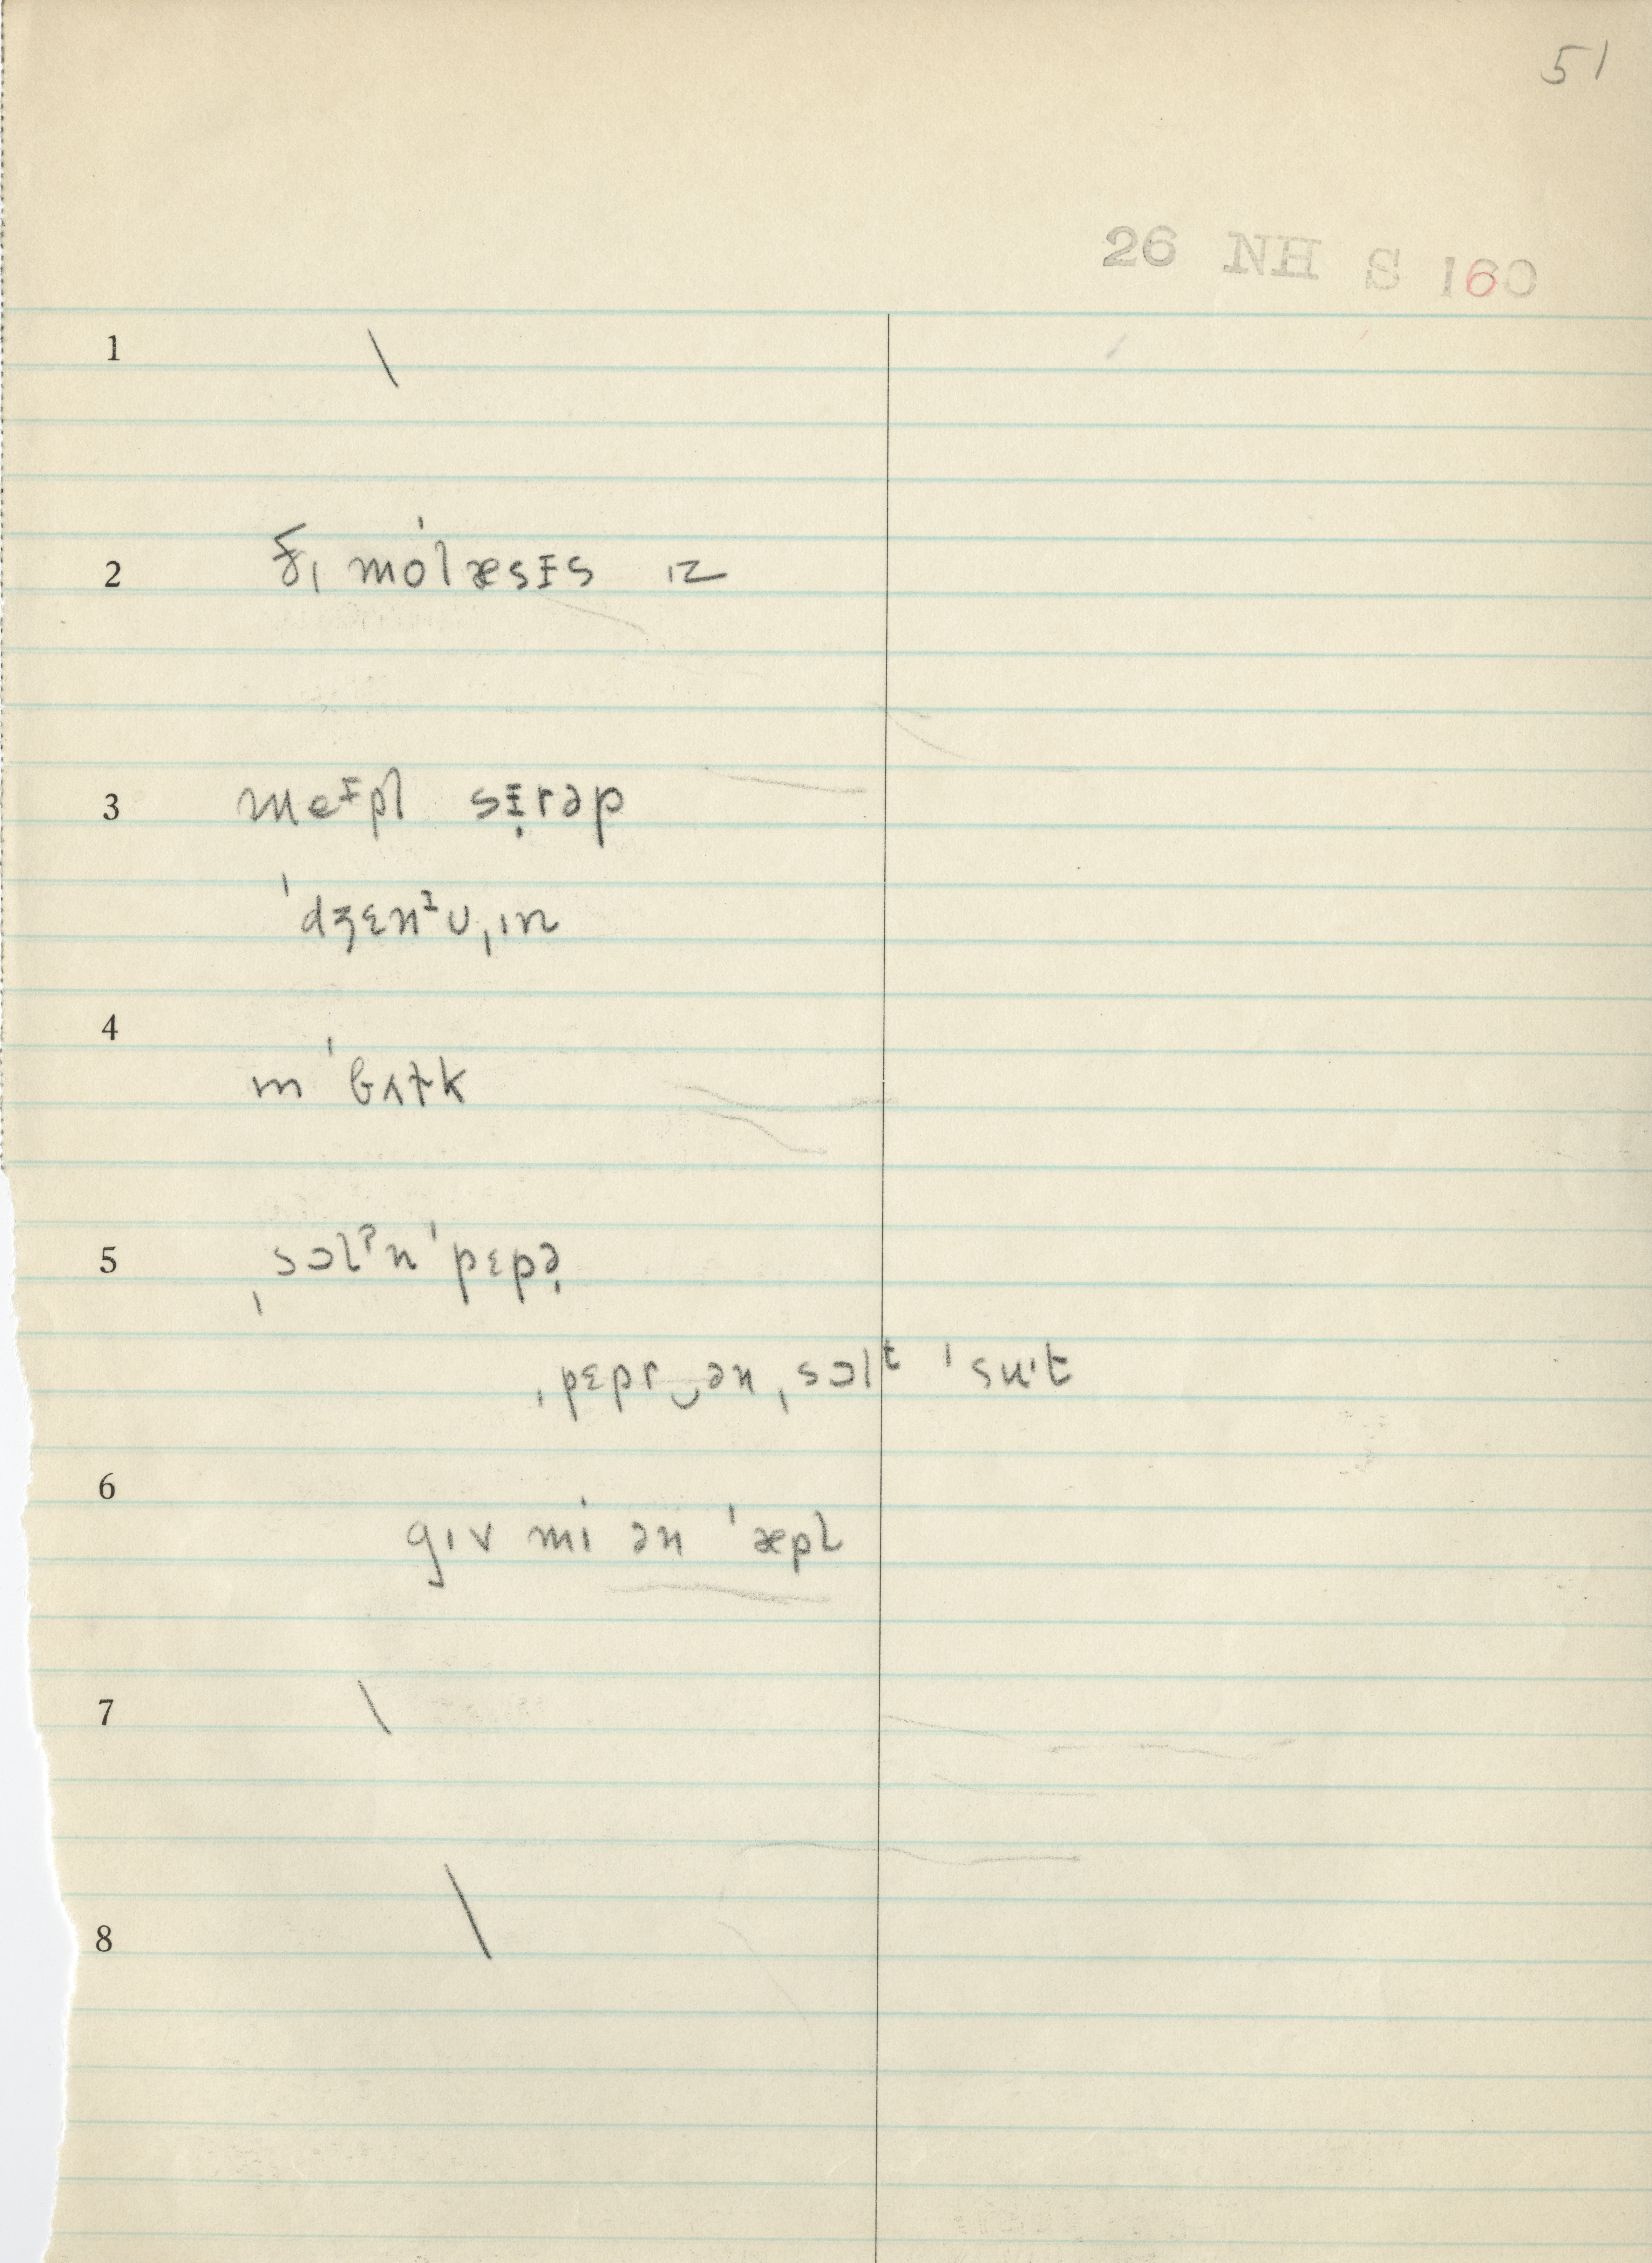 51
26 NH S 160
1 \
2 ðɪ moˈlæsᵻs ɪz
3 meᵻpl sᵻ̣rəp
ˈdʒɛnᴵuˌɪn
4
m ˈbʌɫk
5 ˌsɔlˀn ˈpɛpə̣
ˌpɛpr‿ən ˌsɔlᵗ ˈsuˑt
6
gɪv mi ən ˈæpl
7 \
8 \